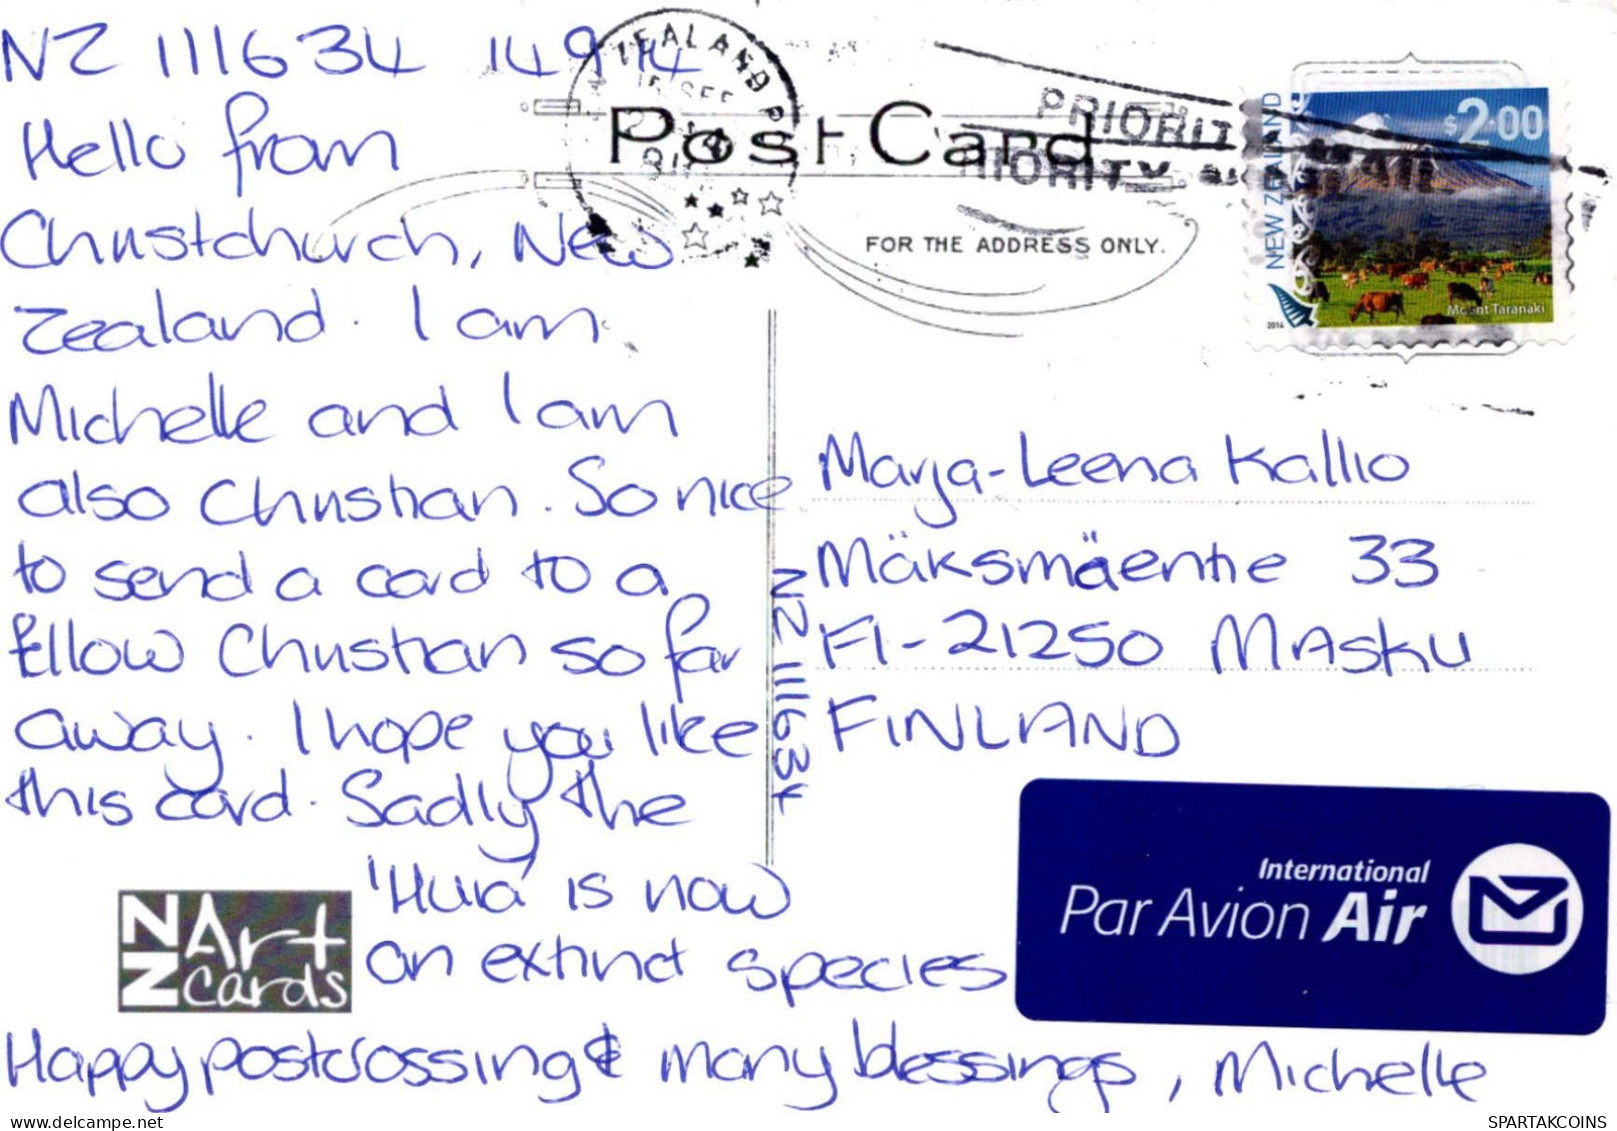 NZ 111634 14 9 14
Hello from
Christchurch, New
Zealand. I am
Michelle and I am
also Christian. So nice
to send a card to a
fellow Christian so far
away. I hope you like
this card. Sadly the
'Huia' is now
an extinct species
Happy postcrossing & many blessings, Michelle
NZ Art Cards
Post Card
FOR THE ADDRESS ONLY.
ZEALAND P
15 SEP
PRIORIT
RIORITY MAIL
NEW ZEALAND
$2.00
2014
Mount Taranaki
NZ 111634
Marja-Leena Kallio
Mäksmäentie 33
FI-21250 MASKU
FINLAND
International
Par Avion Air
delcampe.net
SPARTAKCOINS